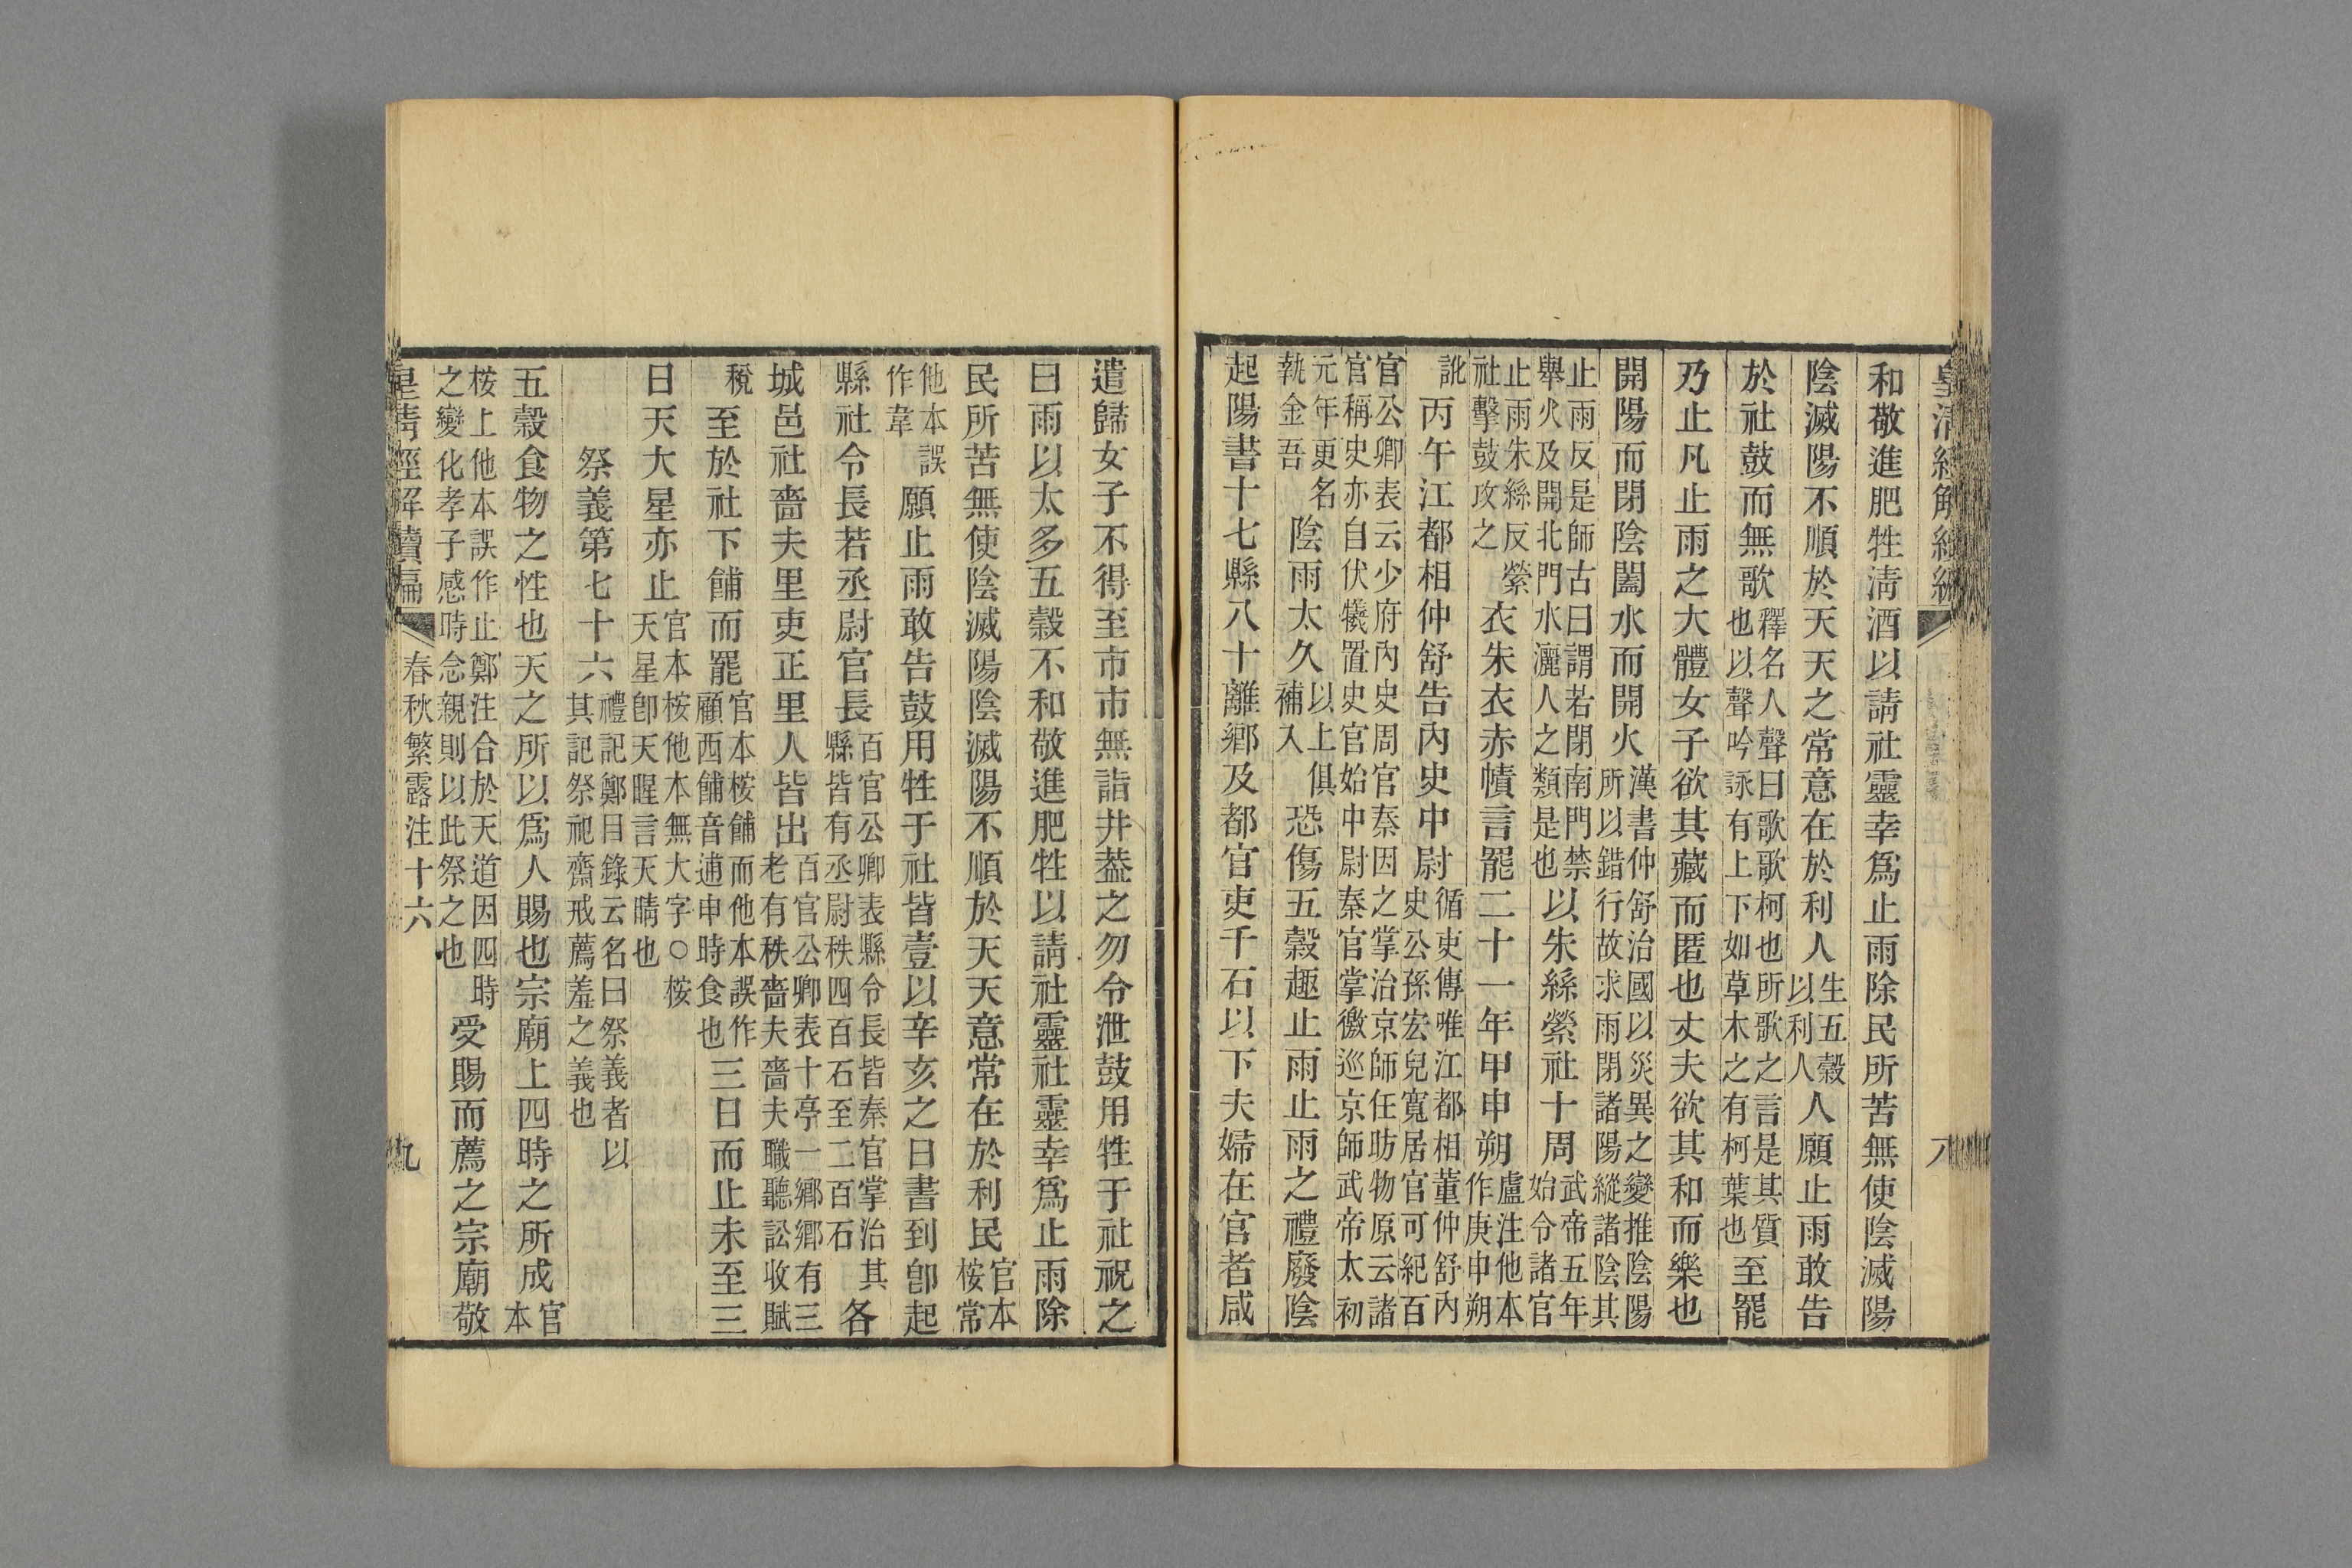 皇清經解續編
八
和敬進肥牲淸酒以請社靈幸爲止雨除民所苦無使陰滅陽
陰滅陽不順於天天之常意在於利人生五穀以利人人願止雨敢告
於社鼓而無歌釋名人聲曰歌歌柯也所歌之言是其質也以聲吟詠有上下如草木之有柯葉也至罷
乃止凡止雨之大體女子欲其藏而匿也丈夫欲其和而樂也
開陽而閉陰闔水而開火漢書仲舒治國以災異之變推陰陽所以錯行故求雨閉諸陽縱諸陰其
止雨反是師古曰謂若閉南門禁舉火及開北門水灑人之類是也以朱絲縈社十周武帝五年始令諸官
止雨朱絲反縈社擊鼓攻之衣朱衣赤幘言罷二十一年甲申朔盧注他本作庚申朔
訛丙午江都相仲舒告內史中尉循吏傳唯江都相董仲舒內史公孫宏兒寬居官可紀百
官公卿表云少府內史周官秦因之掌治京師任昉物原云諸官稱史亦自伏犧置史官始中尉秦官掌徼巡京師武帝太初
元年更名執金吾陰雨太久以上俱補入恐傷五穀趣止雨止雨之禮廢陰
起陽書十七縣八十離鄉及都官吏千石以下夫婦在官者咸
遣歸女子不得至市市無詣井葢之勿令泄鼓用牲于社祝之
曰雨以太多五穀不和敬進肥牲以請社靈社靈幸爲止雨除
民所苦無使陰滅陽陰滅陽不順於天天意常在於利民官本桉常
他本誤作韋願止雨敢告鼓用牲于社皆壹以辛亥之日書到卽起
縣社令長若丞尉官長百官公卿表縣令長皆秦官掌治其縣皆有丞尉秩四百石至二百石各
城邑社嗇夫里吏正里人皆出百官公卿表十亭一鄉鄉有三老有秩嗇夫嗇夫職聽訟收賦
稅至於社下餔而罷官本桉餔而他本誤作顧西餔音逋申時食也三日而止未至三
日天大星亦止官本桉他本無大字○桉天星卽天暒言天晴也
祭義第七十六禮記鄭目錄云名曰祭義者以其記祭祀齋戒薦羞之義也
五穀食物之性也天之所以爲人賜也宗廟上四時之所成官本
桉上他本誤作止鄭注合於天道因四時之變化孝子感時念親則以此祭之也受賜而薦之宗廟敬
皇清經解續編
春秋繁露注十六
九